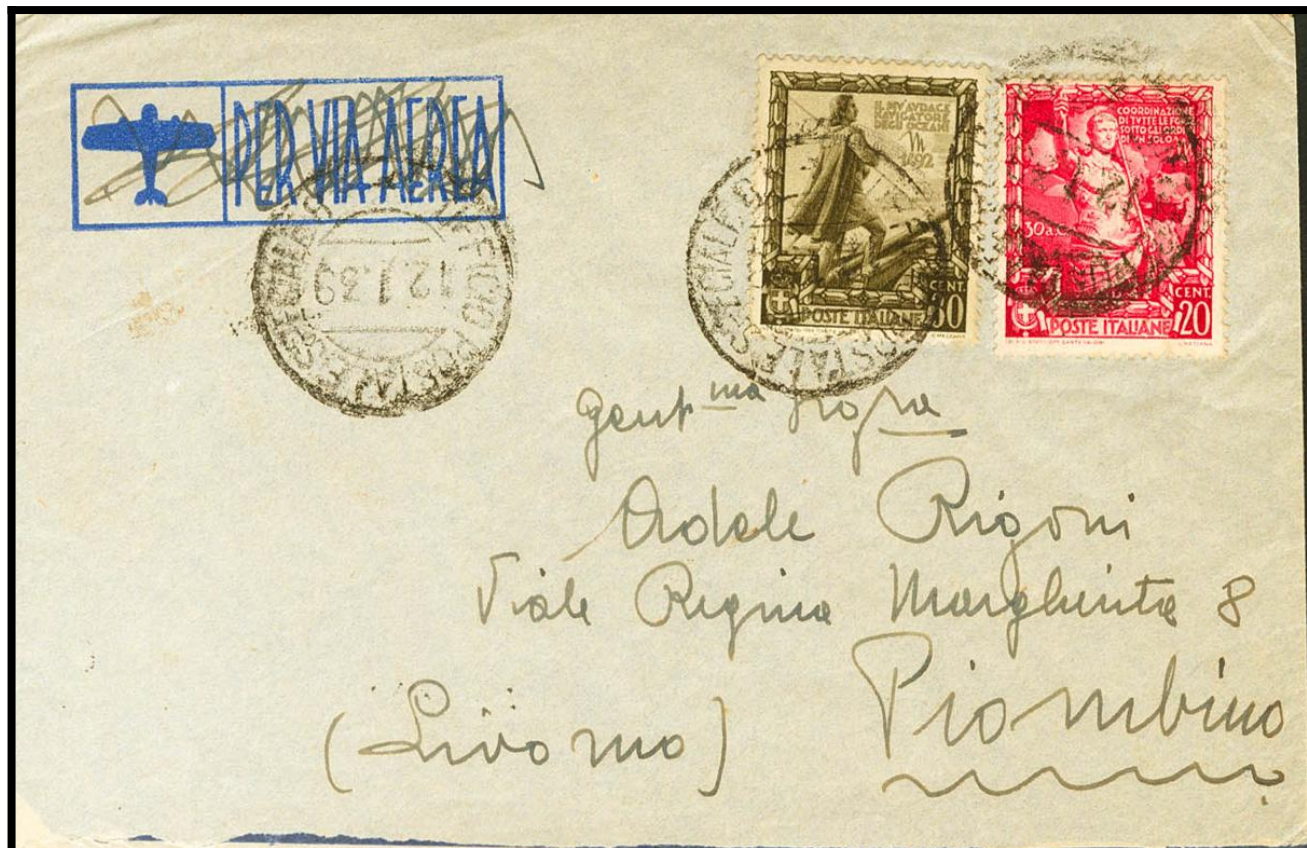 PER VIA AEREA
UFFICIO POSTALE SPECIALE
12.1.39
IL PIV AVDACE
NAVIGATORE
DEGLI OCEANI
1492
CENT.
30
POSTE ITALIANE
COORDINAZIONE
DI TVTTE LE FORZE
SOTTO GLI ORDINI
DI VN SOLO
30 a.C.
CENT.
POSTE ITALIANE 20
Gent ma
Adele Rigoni
Viale Regina Margherita 8
Piombino
(Livorno)